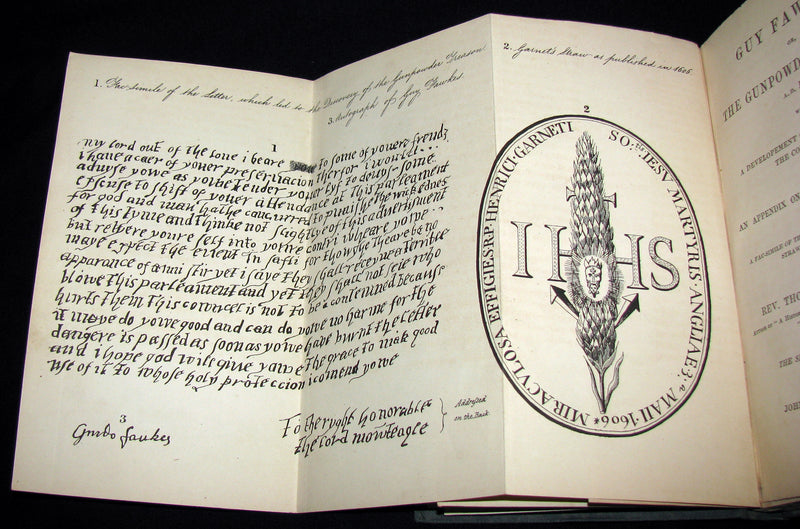 1. Fac-simile of the Letter, which led to the Discovery of the Gunpowder Treason.
3. Autograph of Guy Fawkes.
1
my lord out of the loue i beare to some of youere frendz
i haue a caer of youer preseruacion therfor i would
aduyse yowe as yowe tender youer lyf to deuys some
exscuse to shift of youer attendance at this parleament
for god and man hathe concurred to punishe the wickednes
of this tyme and thinke not slightlye of this aduertisment
but retyere youre self into youre contri wheare yowe
maye expect the euent in safti for thowghe theare be no
apparance of anni stir yet i saye they shall receyue a terrible
blowe this parleament and yet they shall not seie who
hurts them This councel is not to be contemned because
it maye do yowe good and can do yowe no harme for the
dangere is passed as soon as yowe have burnt the letter
and i hope god will give yowe the grace to mak good
use of it to whose holy proteccion i comend yowe
To the ryght honorable
the lord mowteagle
Addressed
on the Back
3
Guido faukes
2. Garnet's Straw as published in 1606.
2
MIRACVLOSA EFFIGIES·R·P·HENRICI·GARNETI SO: IESV MARTYRIS·ANGLIAE 3·a MAII·1606*
IHS
GUY FAW
OR,
THE GUNPOWD
A.D.
A DEVELOPEMENT
THE CO
AN APPENDIX ON
A FAC-SIMILE OF TH
STRAW
REV. THO
AUTHOR OF "A HISTOR
THE SE
JOH